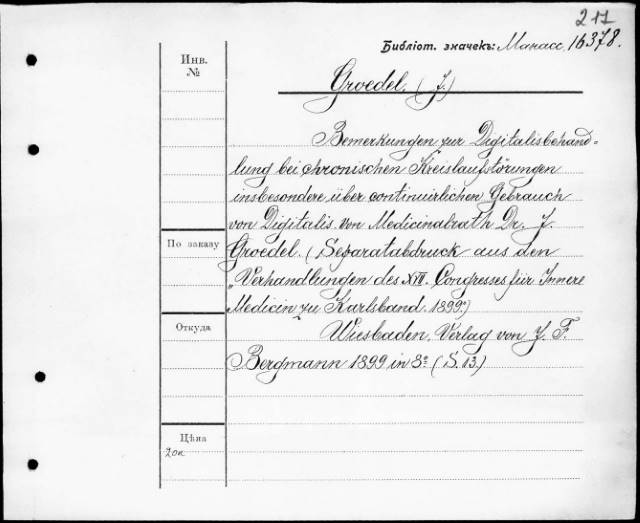 211
Библіот. значекъ: Манасс. 16378.
Инв.
№
Groedel. (J.)
Bemerkungen zur Digitalisbehand=
lung bei chronischen Kreislaufstörungen
insbesondere über continuirlichen Gebrauch
von Digitalis von Medicinalrath Dr. J.
По заказу
Groedel. (Separatabdruck aus den
„Verhandlungen des XVII. Congresses für Innere
Medicin zu Karlsband. 1899.)
Откуда
Wiesbaden, Verlag von J. F.
Bergmann 1899 in 8º (S. 13.)
Цѣна
20к